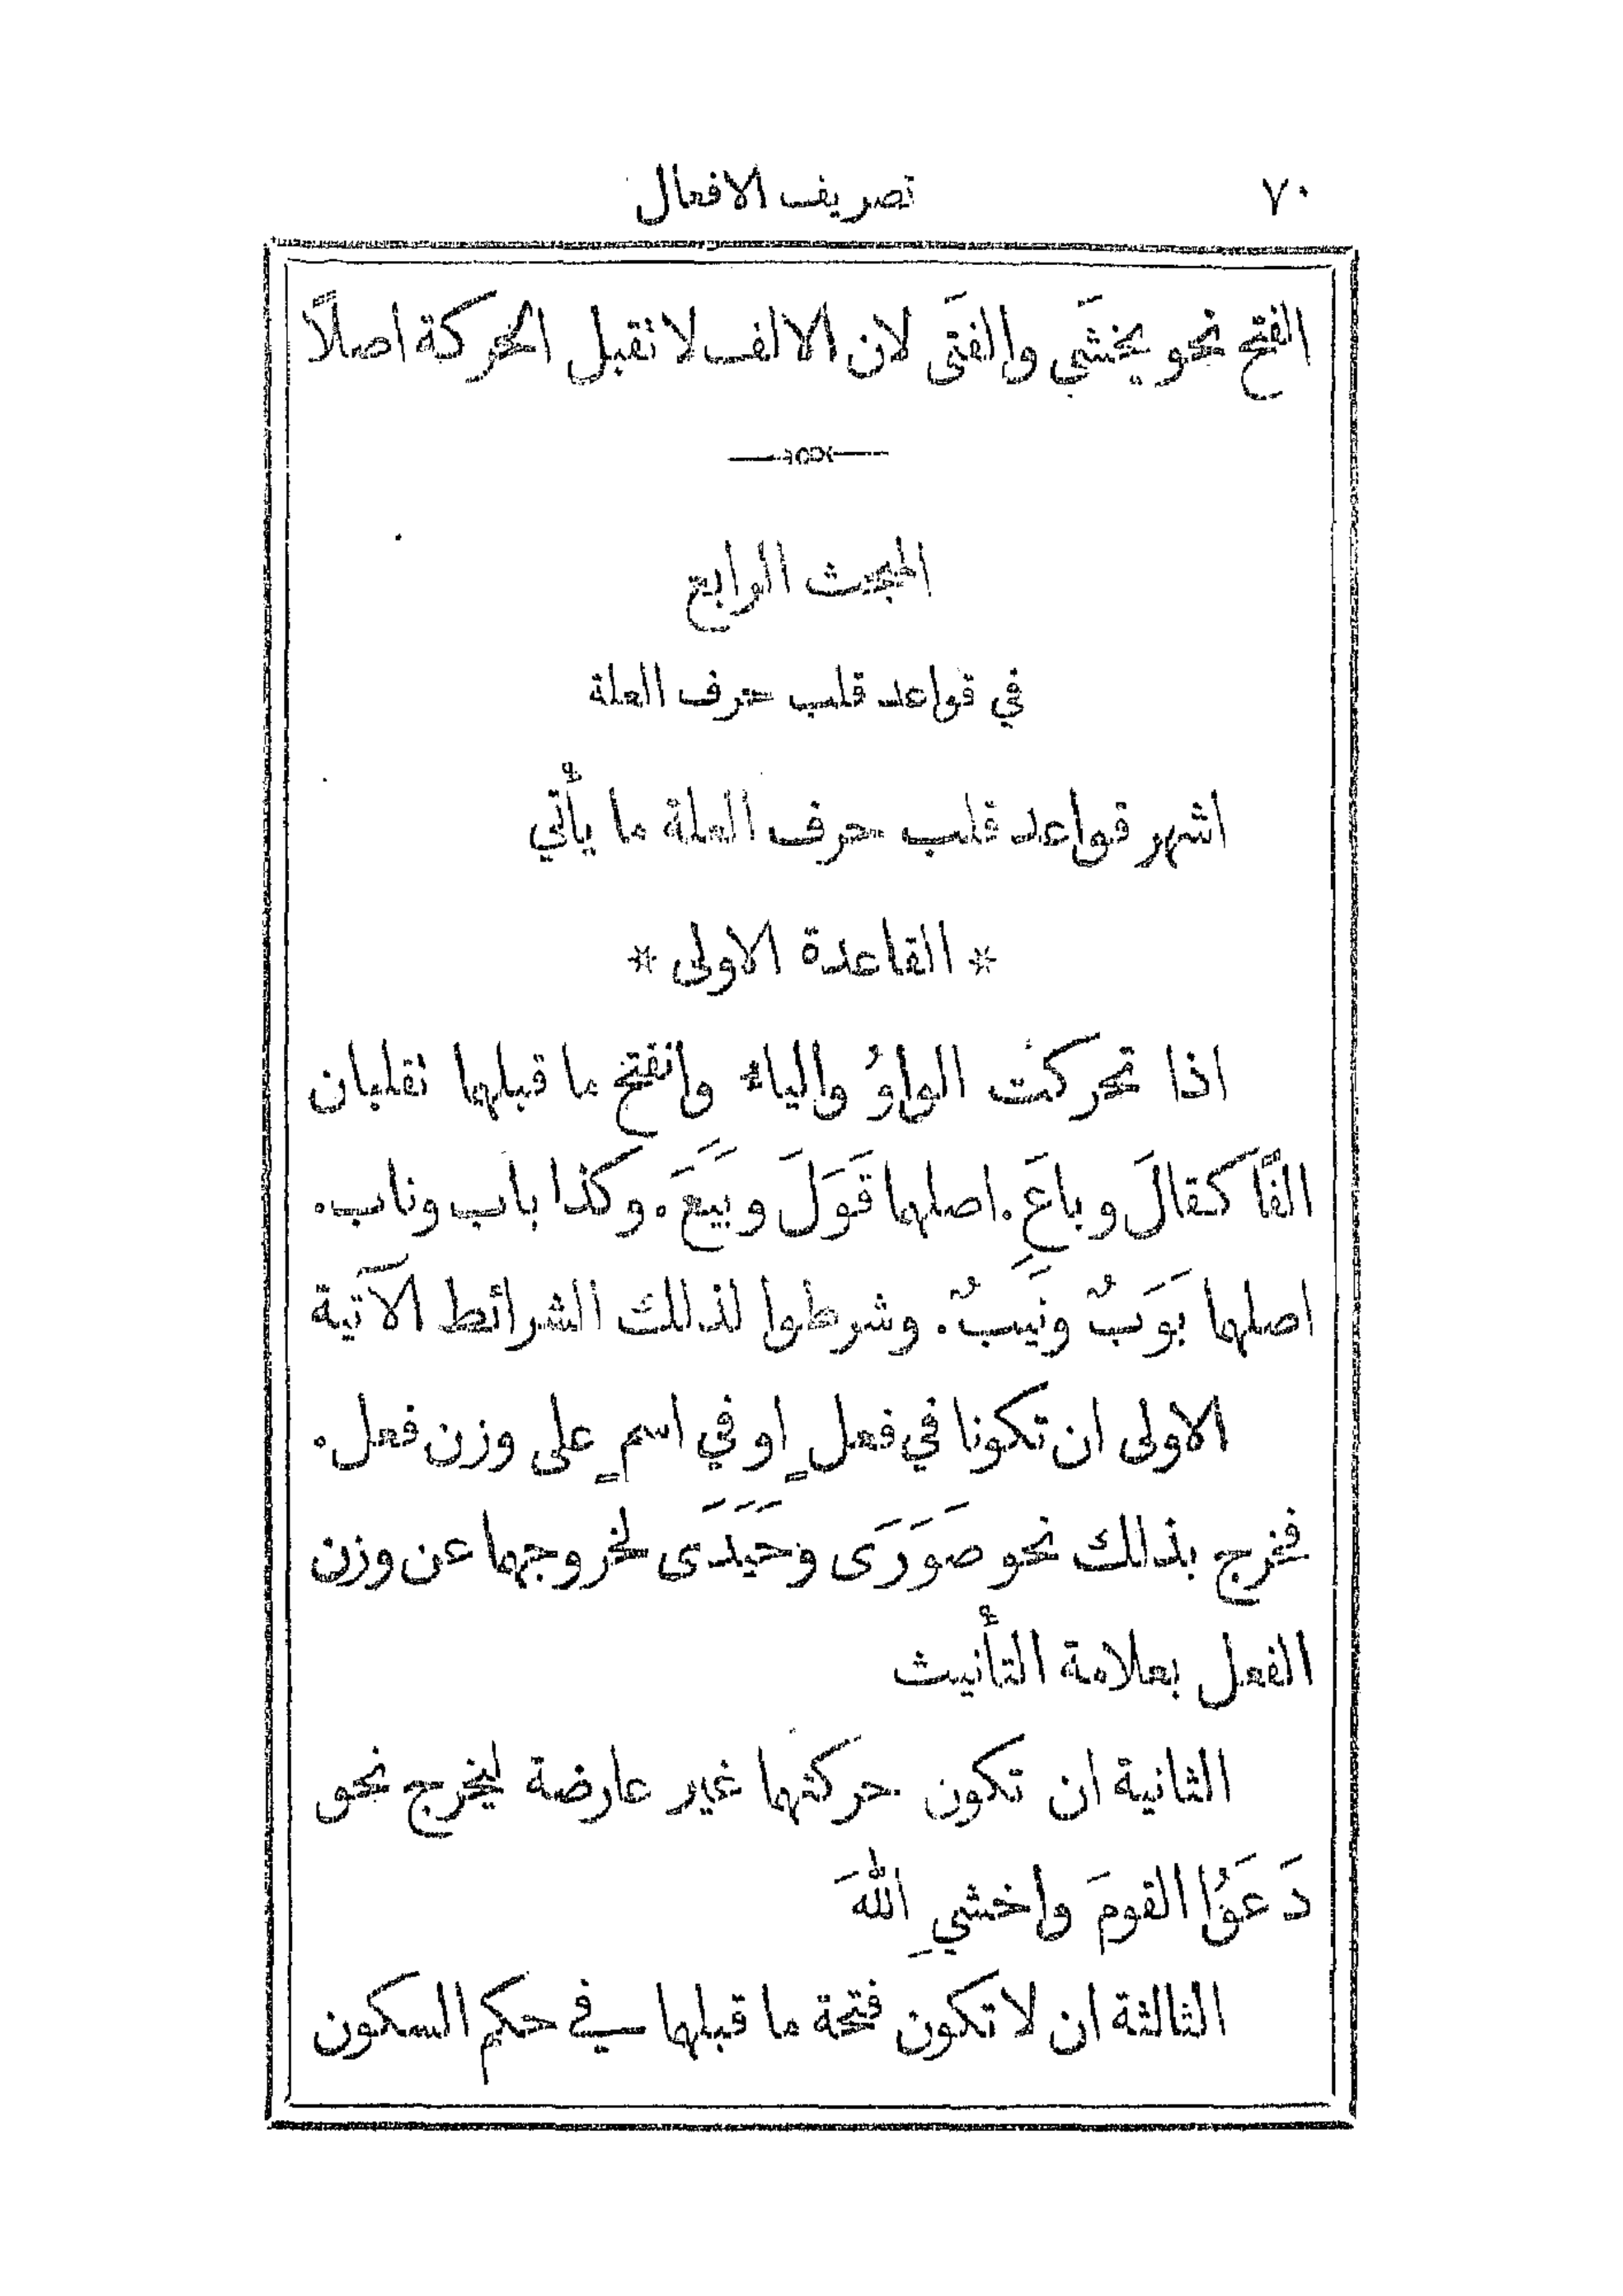 ٧٠ تصريف الافعال
الفتح نحو يخشَى والفتَى لان الالف لا تقبل الحركة اصلاً
المبحث الرابع
في قواعد قلب حرف العلة
اشهر قواعد قلب حرف العلة ما يأتي
* القاعدة الاولى *
اذا تحركت الواوُ والياء وانفتح ما قبلهما تقلبان
الفًا كقالَ وباعَ. اصلهما قَوَلَ وبَيَعَ. وكذا باب وناب.
اصلهما بَوَبٌ ونَيَبٌ. وشرطوا لذلك الشرائط الآتية
الاولى ان تكونا في فعلٍ او في اسمٍ على وزن فعل.
فخرج بذلك نحو صَوَرَى وحَيَدَى لخروجهما عن وزن
الفعل بعلامة التأنيث
الثانية ان تكون حركتهما غير عارضة ليخرج نحو
دَعَوُا القومَ واخشيِ اللهَ
الثالثة ان لا تكون فتحة ما قبلهما في حكم السكون